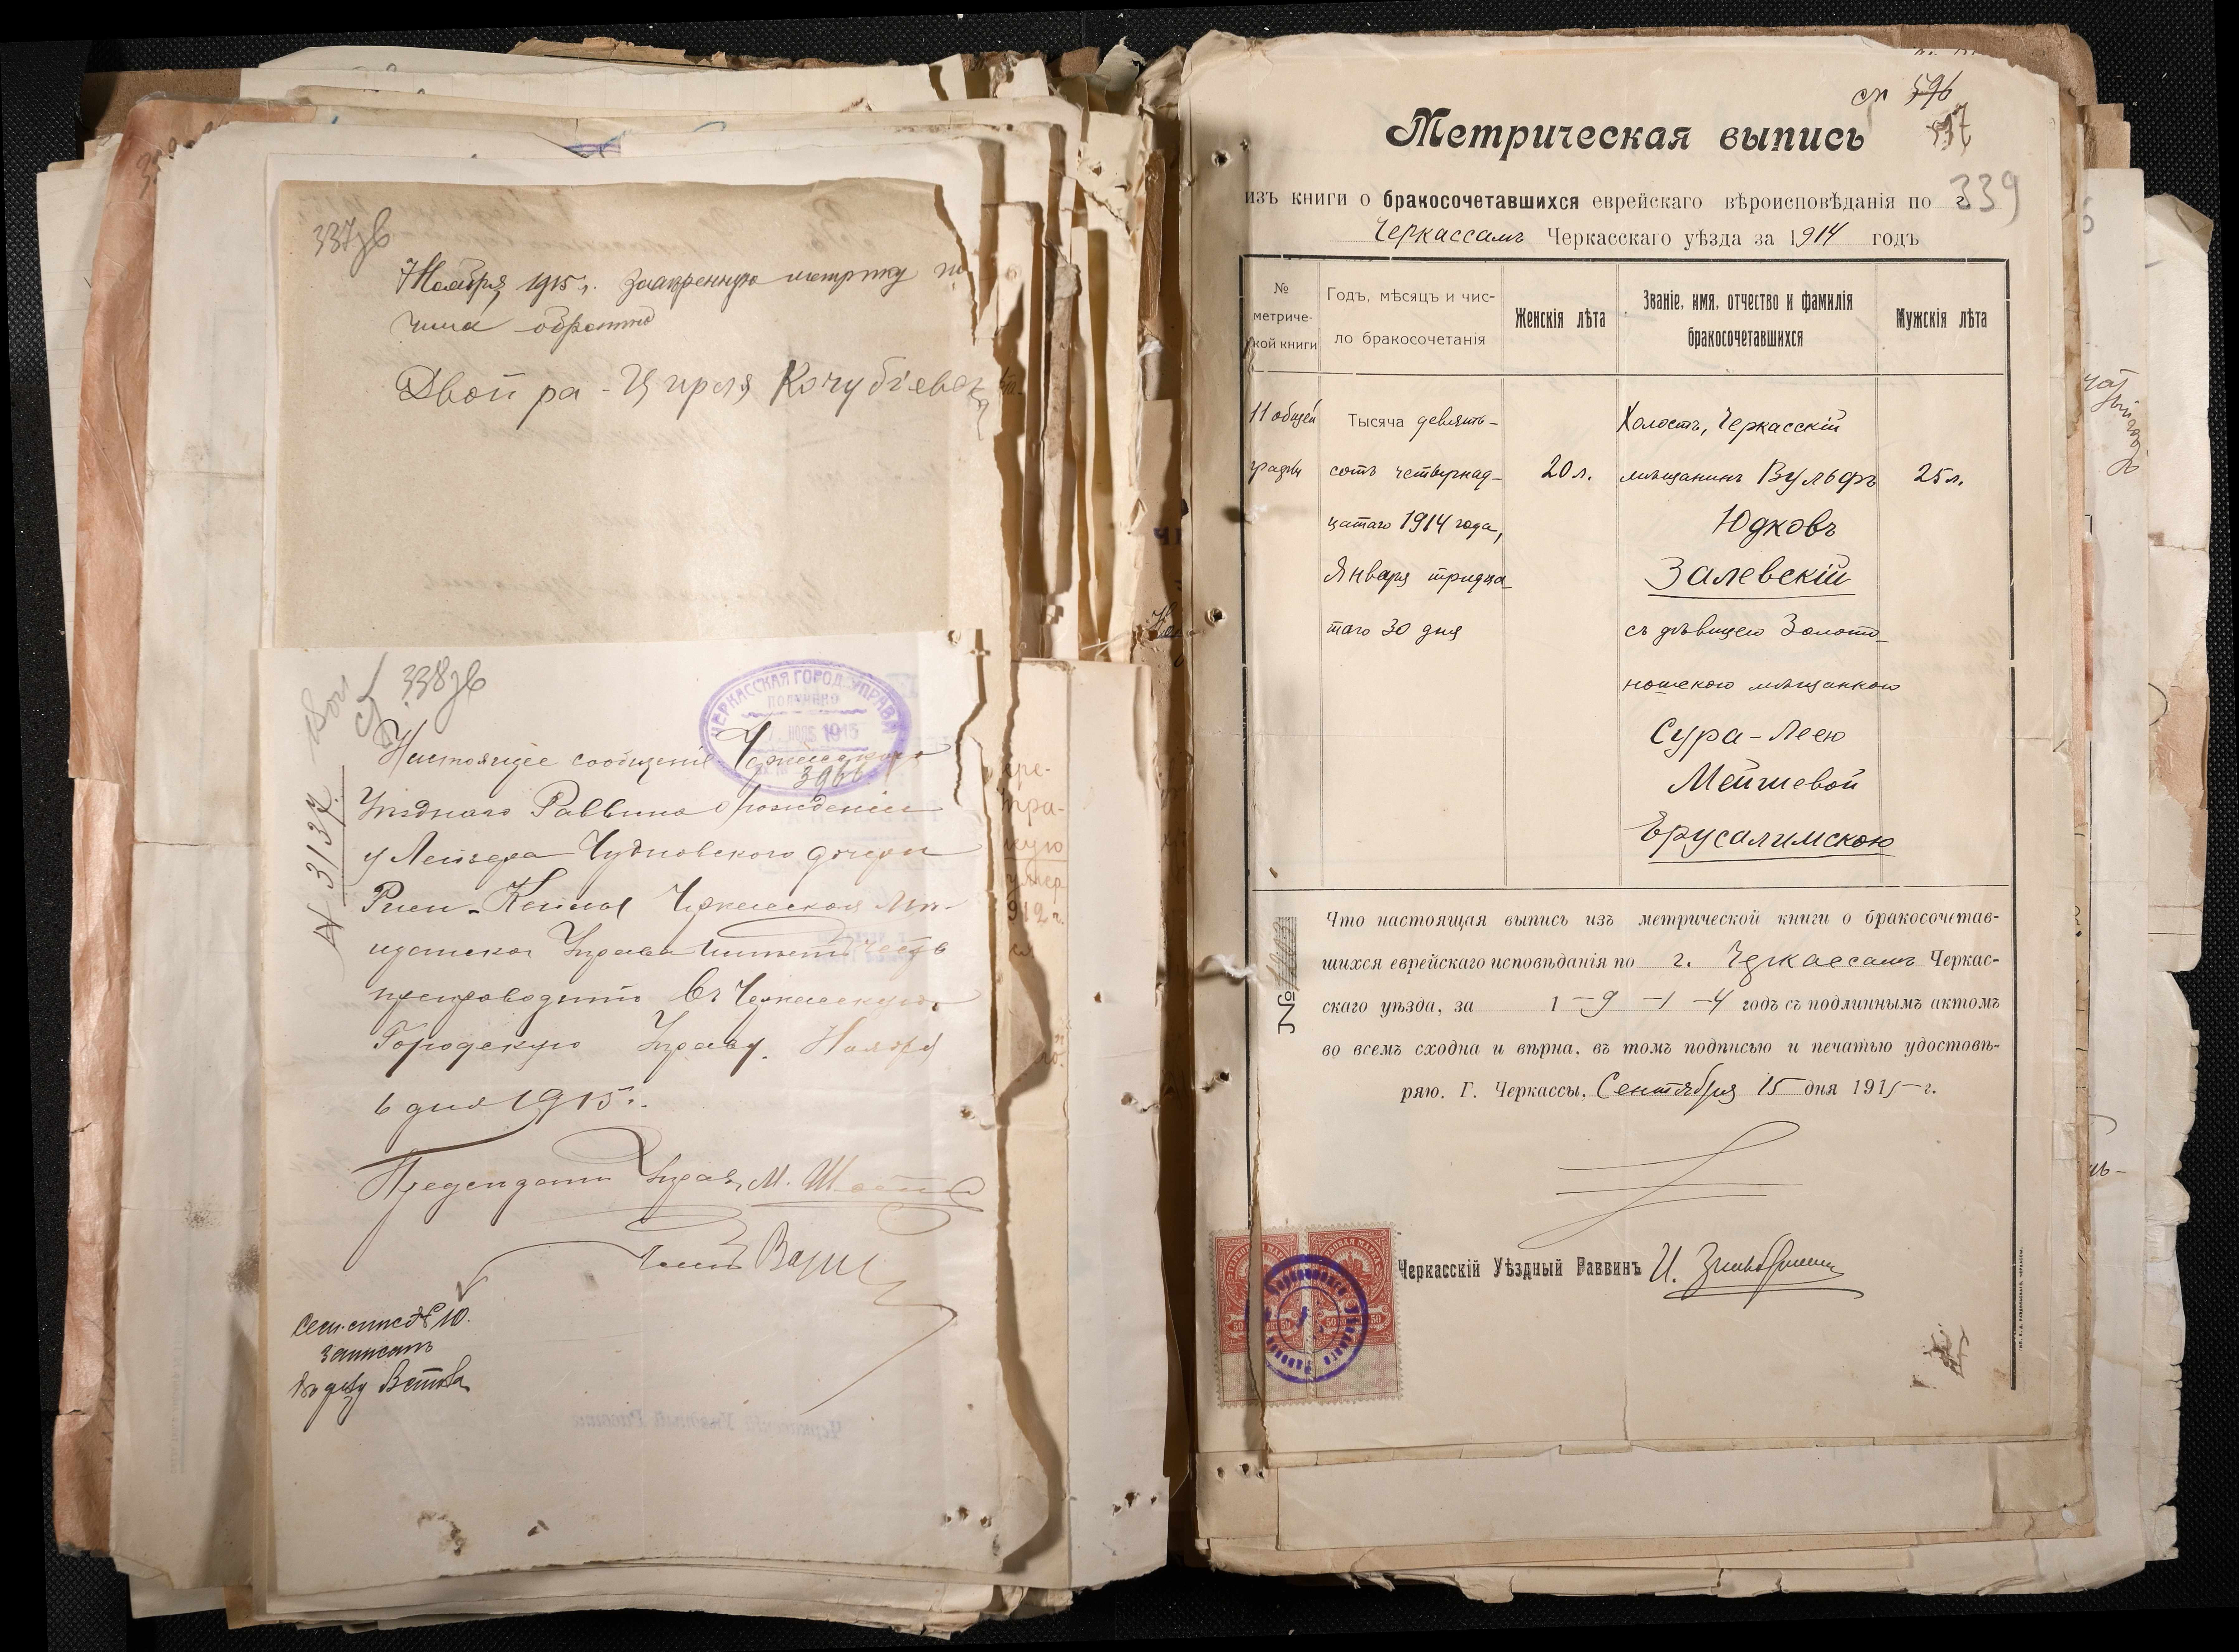 337зв
7 Ноября 1915 г. заверенную метрику по
лучила обратно
Двойра - Циреля Кочубіевская
338зв
ЧЕРКАССКАЯ ГОРОД. УПРАВА
ПОЛУЧЕНО
1915
3966
№ 3137.
Настоящее сообщеніе Черкасскаго
Уѣзднаго Раввина о рожденіи
у Лейзера Чудновскаго дочери
Черкасская Мѣ-
щанская Управа имѣетъ честь
препроводить въ Черкасскую
Городскую Управу. Ноября
6 дня 1915 г.
Предсѣдатель Управы М.
Сем. списокъ № 10.
записать
Черкасскій Уѣздный Раввинъ
ст 596
597
Метрическая выпись
339
изъ книги о бракосочетавшихся еврейскаго вѣроисповѣданія по г.
Черкассамъ Черкасскаго уѣзда за 1914 годъ
№ метриче-кой книги
Годъ, мѣсяцъ и чис-ло бракосочетанія
Женскія лѣта
Званіе, имя, отчество и фамилія бракосочетавшихся
Мужскія лѣта
11 общей
графы
Тысяча девять-
сотъ четырнад-
цатаго 1914 года,
Января тридца-
таго 30 дня
20 л.
Холостъ, Черкасскій
мѣщанинъ Вульфъ
Юдковъ
Залевскій
съ дѣвицею Золото-
ношскою мѣщанкою
Сура-Леею
Мейшевой
Ерусалимскою
25 л.
№ 1203
Что настоящая выпись изъ метрической книги о бракосочетав-
шихся еврейскаго исповѣданія по г. Черкассамъ Черкас-
скаго уѣзда, за 1-9-1-4 годъ съ подлиннымъ актомъ
во всемъ сходна и вѣрна, въ томъ подписью и печатью удостовѣ-
ряю. Г. Черкассы, Сентября 15 дня 1915 г.
Черкасскій Уѣздный Раввинъ И.
ГЕРБОВАЯ МАРКА
ГЕРБОВАЯ МАРКА
50 50
50 50